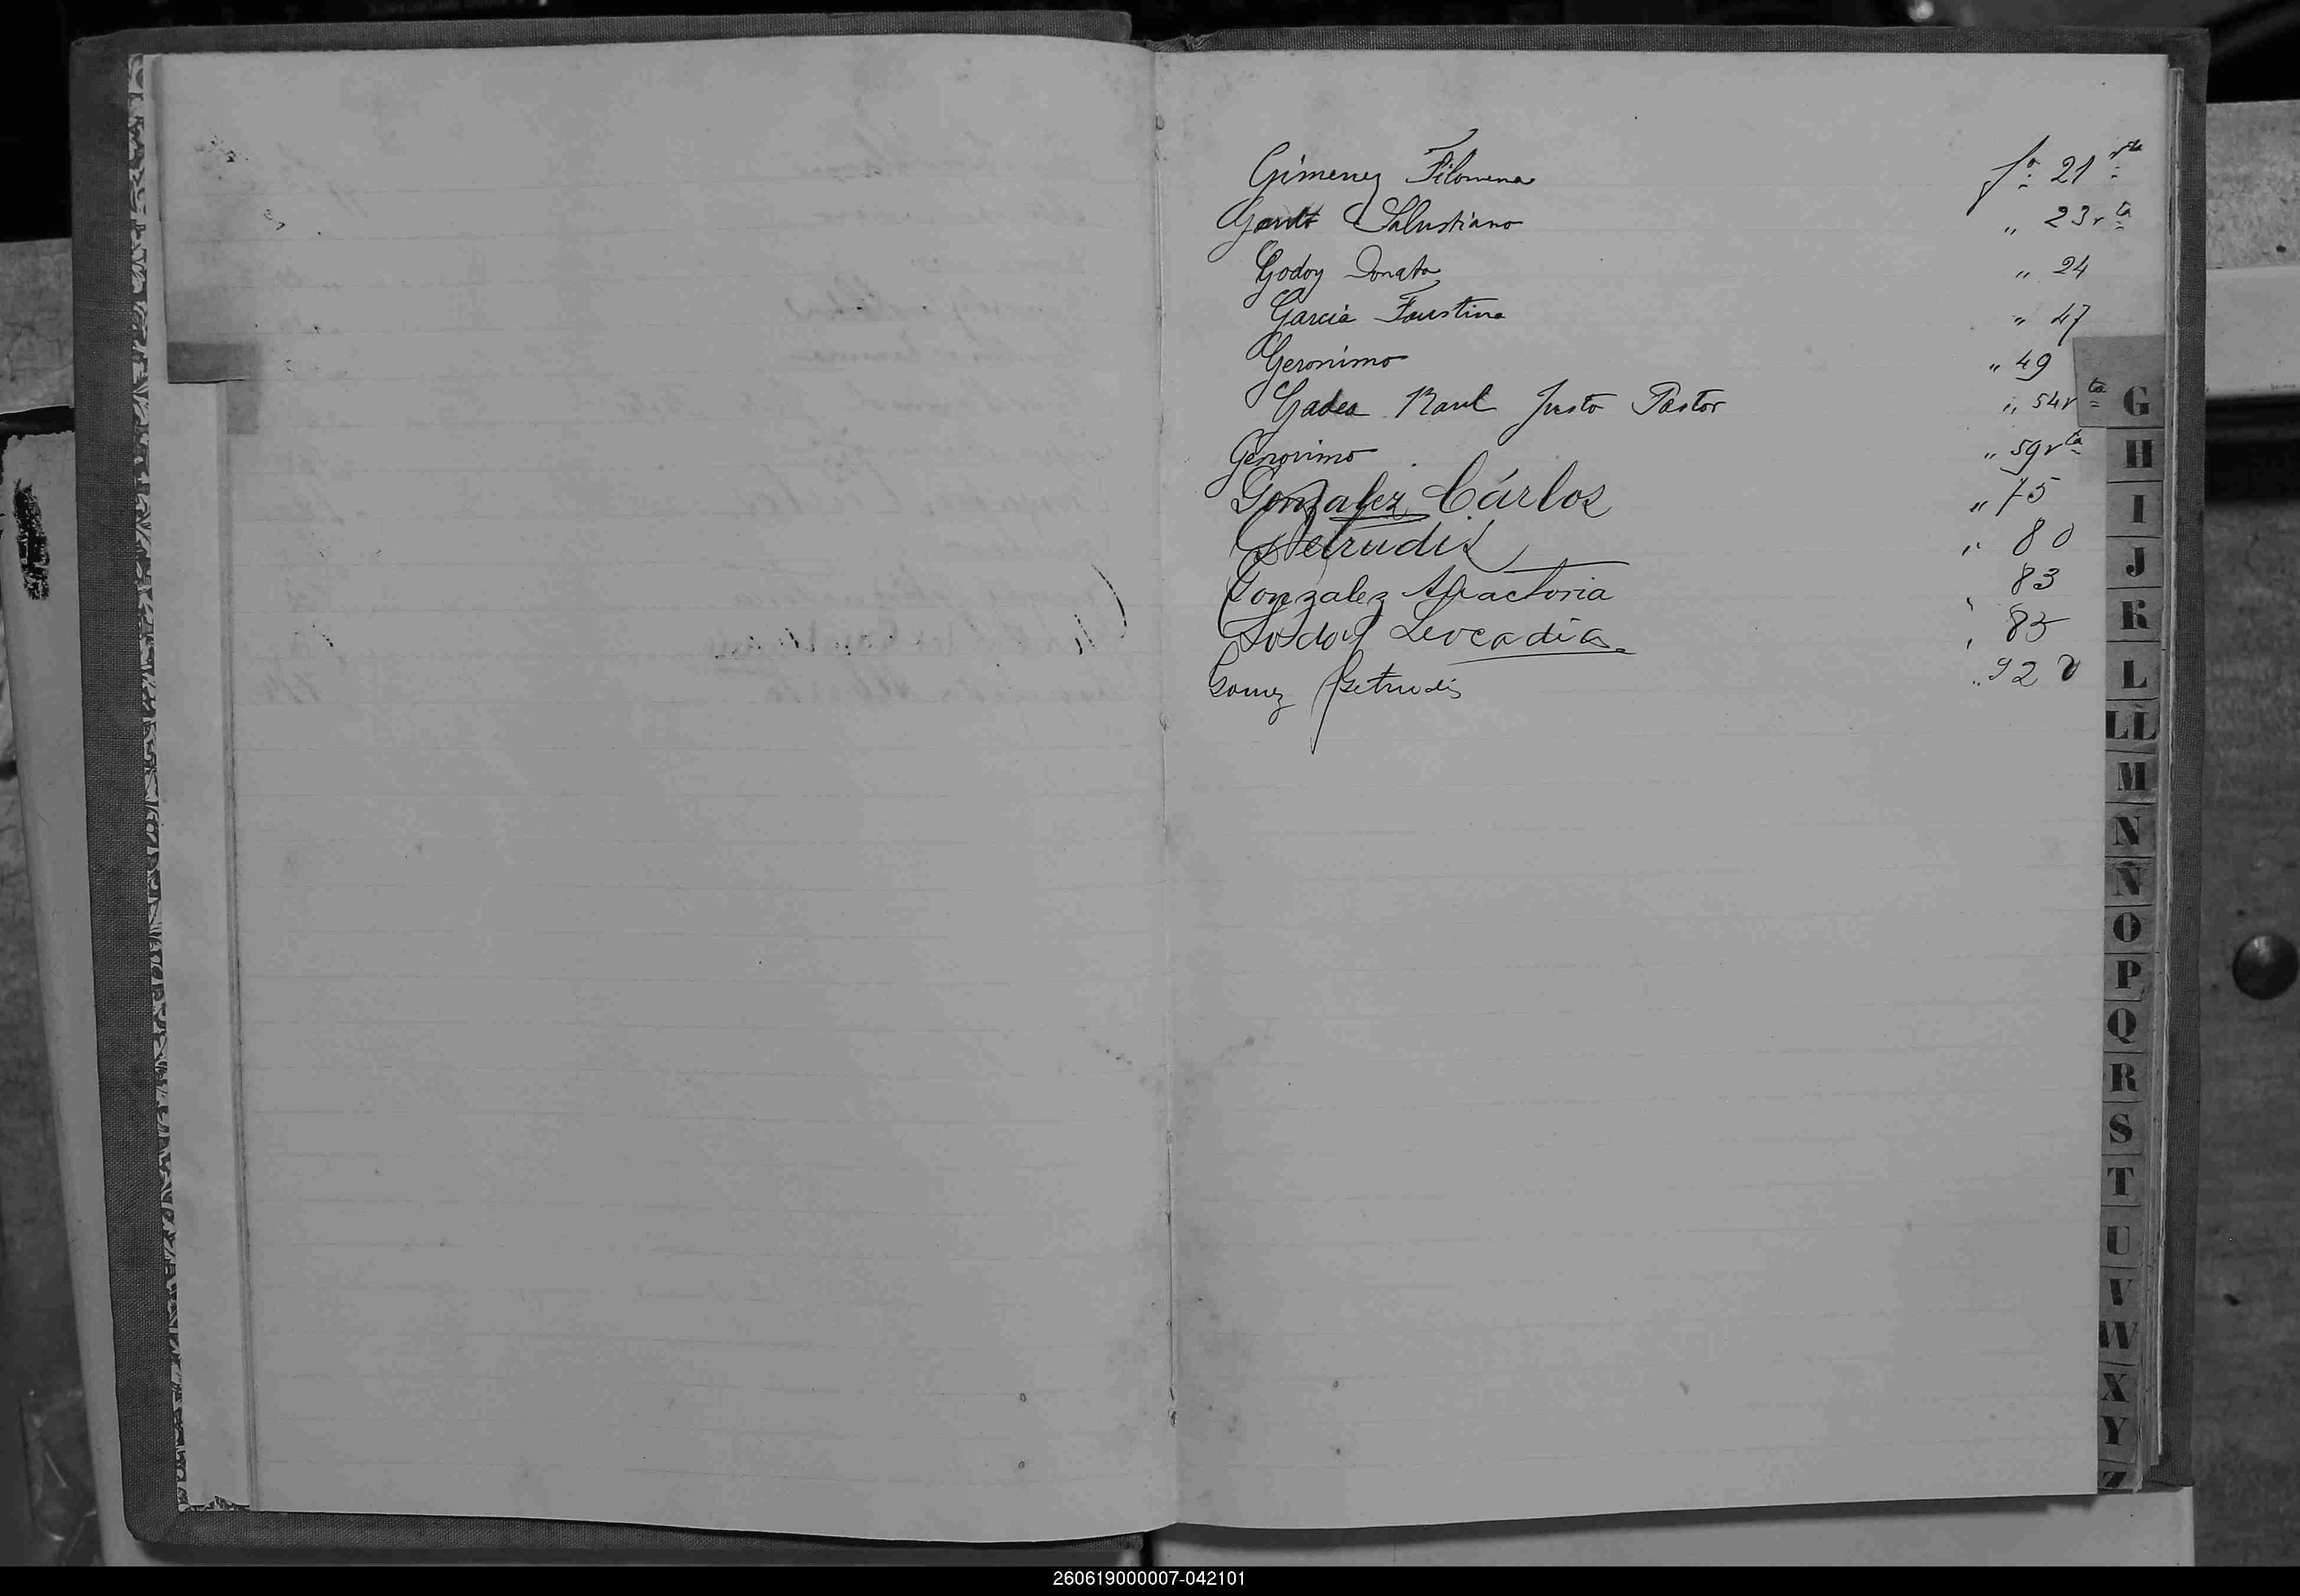 Gimenez Filomena fº 21 vta
Salustiano " 23 vta
Godoy Donata " 24
Garcia Faustina " 47
Geronimo " 49
Gadea Raul Justo Pastor " 54 vta
Geronimo " 59 vta
Gonzalez Cárlos " 75
Getrudis " 80
Gonzalez " 83
Godoy Leocadia " 85
Gomez Getrudis " 92 v
G
H
I
J
K
L
LL
M
N
Ñ
O
P
Q
R
S
T
U
V
W
X
Y
Z
260619000007-042101